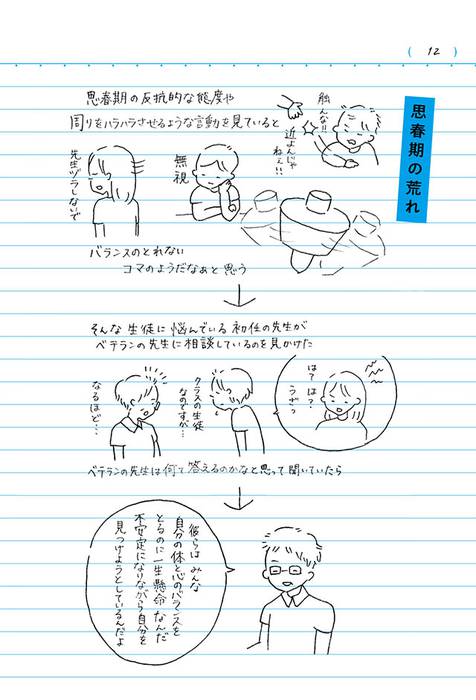 (12)
思春期の荒れ
思春期の反抗的な態度や
周りをハラハラさせるような言動を見ていると
触んな!!
近よんじゃ
ねぇ!!
無視
先生ヅラしないで
バランスのとれない
コマのようだなぁと思う
そんな生徒に悩んでいる初任の先生が
ベテランの先生に相談しているのを見かけた
はてはっ?
うざっ
クラスの生徒
なのですが…
なるほど…
ベテランの先生は何て答えるのかなと思って聞いていたら
彼らはみんな
自分の体と心のバランスを
とるのに一生懸命なんだ
不安定になりながら自分を
見つけようとしているんだよ